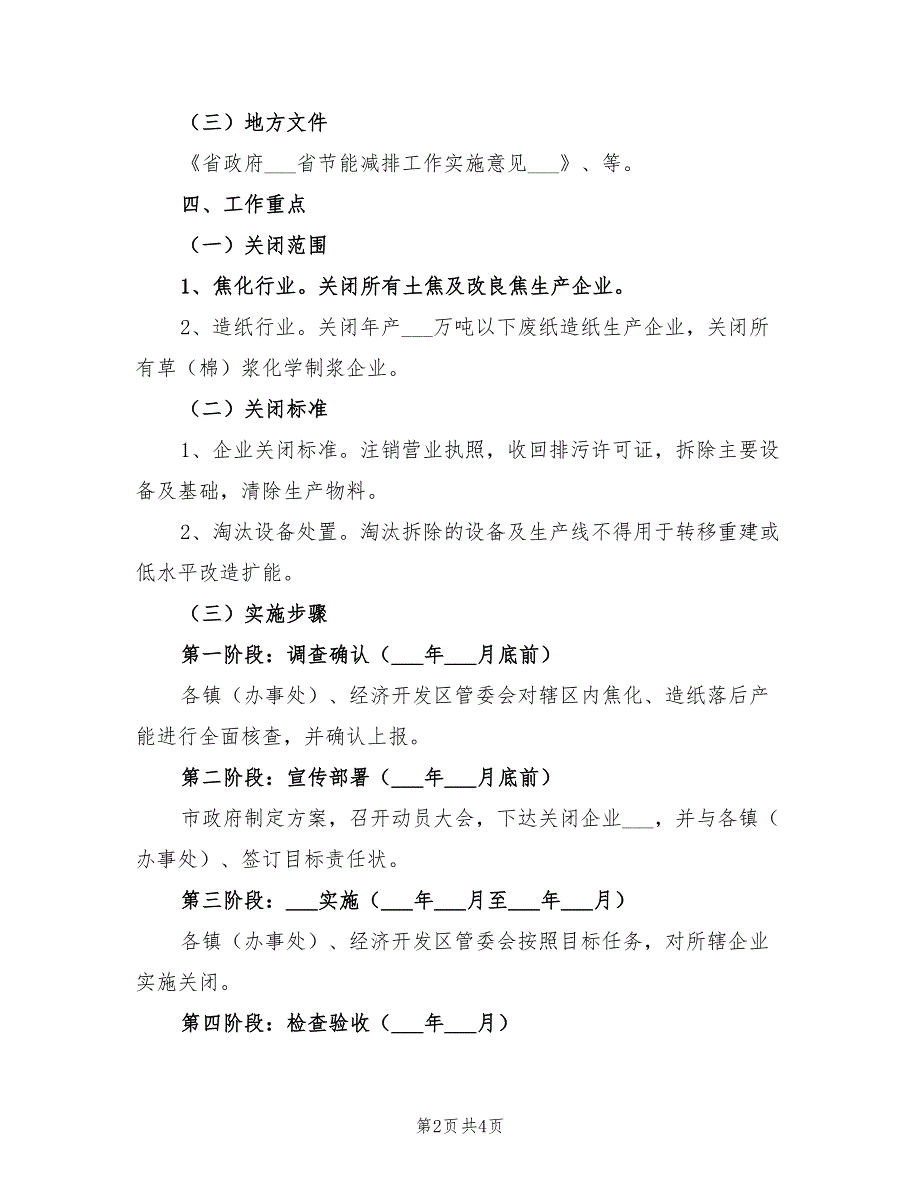 （三）地方文件
《省政府___省节能减排工作实施意见___》、等。
四、工作重点
（一）关闭范围
1、焦化行业。关闭所有土焦及改良焦生产企业。
2、造纸行业。关闭年产___万吨以下废纸造纸生产企业，关闭所
有草（棉）浆化学制浆企业。
（二）关闭标准
1、企业关闭标准。注销营业执照，收回排污许可证，拆除主要设
备及基础，清除生产物料。
2、淘汰设备处置。淘汰拆除的设备及生产线不得用于转移重建或
低水平改造扩能。
（三）实施步骤
第一阶段：调查确认（___年___月底前）
各镇（办事处）、经济开发区管委会对辖区内焦化、造纸落后产
能进行全面核查，并确认上报。
第二阶段：宣传部署（___年___月底前）
市政府制定方案，召开动员大会，下达关闭企业___，并与各镇（
办事处）、签订目标责任状。
第三阶段：___实施（___年___月至___年___月）
各镇（办事处）、经济开发区管委会按照目标任务，对所辖企业
实施关闭。
第四阶段：检查验收（___年___月）
第2页共4页